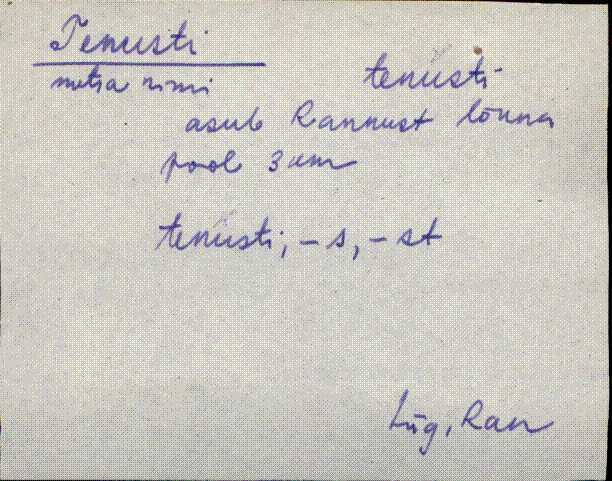 Tenusti
metsa nimi tenusti
asub Rannust lõuna
pool 3 km
tenusti, -s, -st
Lüg, Ran